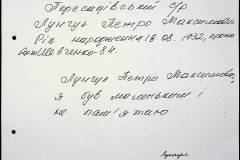 Пересадівський с/р
Лунгул Петро Максимович
Рік народження 18.08.1932, прож
Шевченко-84.
Лунгул Петро Максимович
я був маленьким і
не пам'ятаю